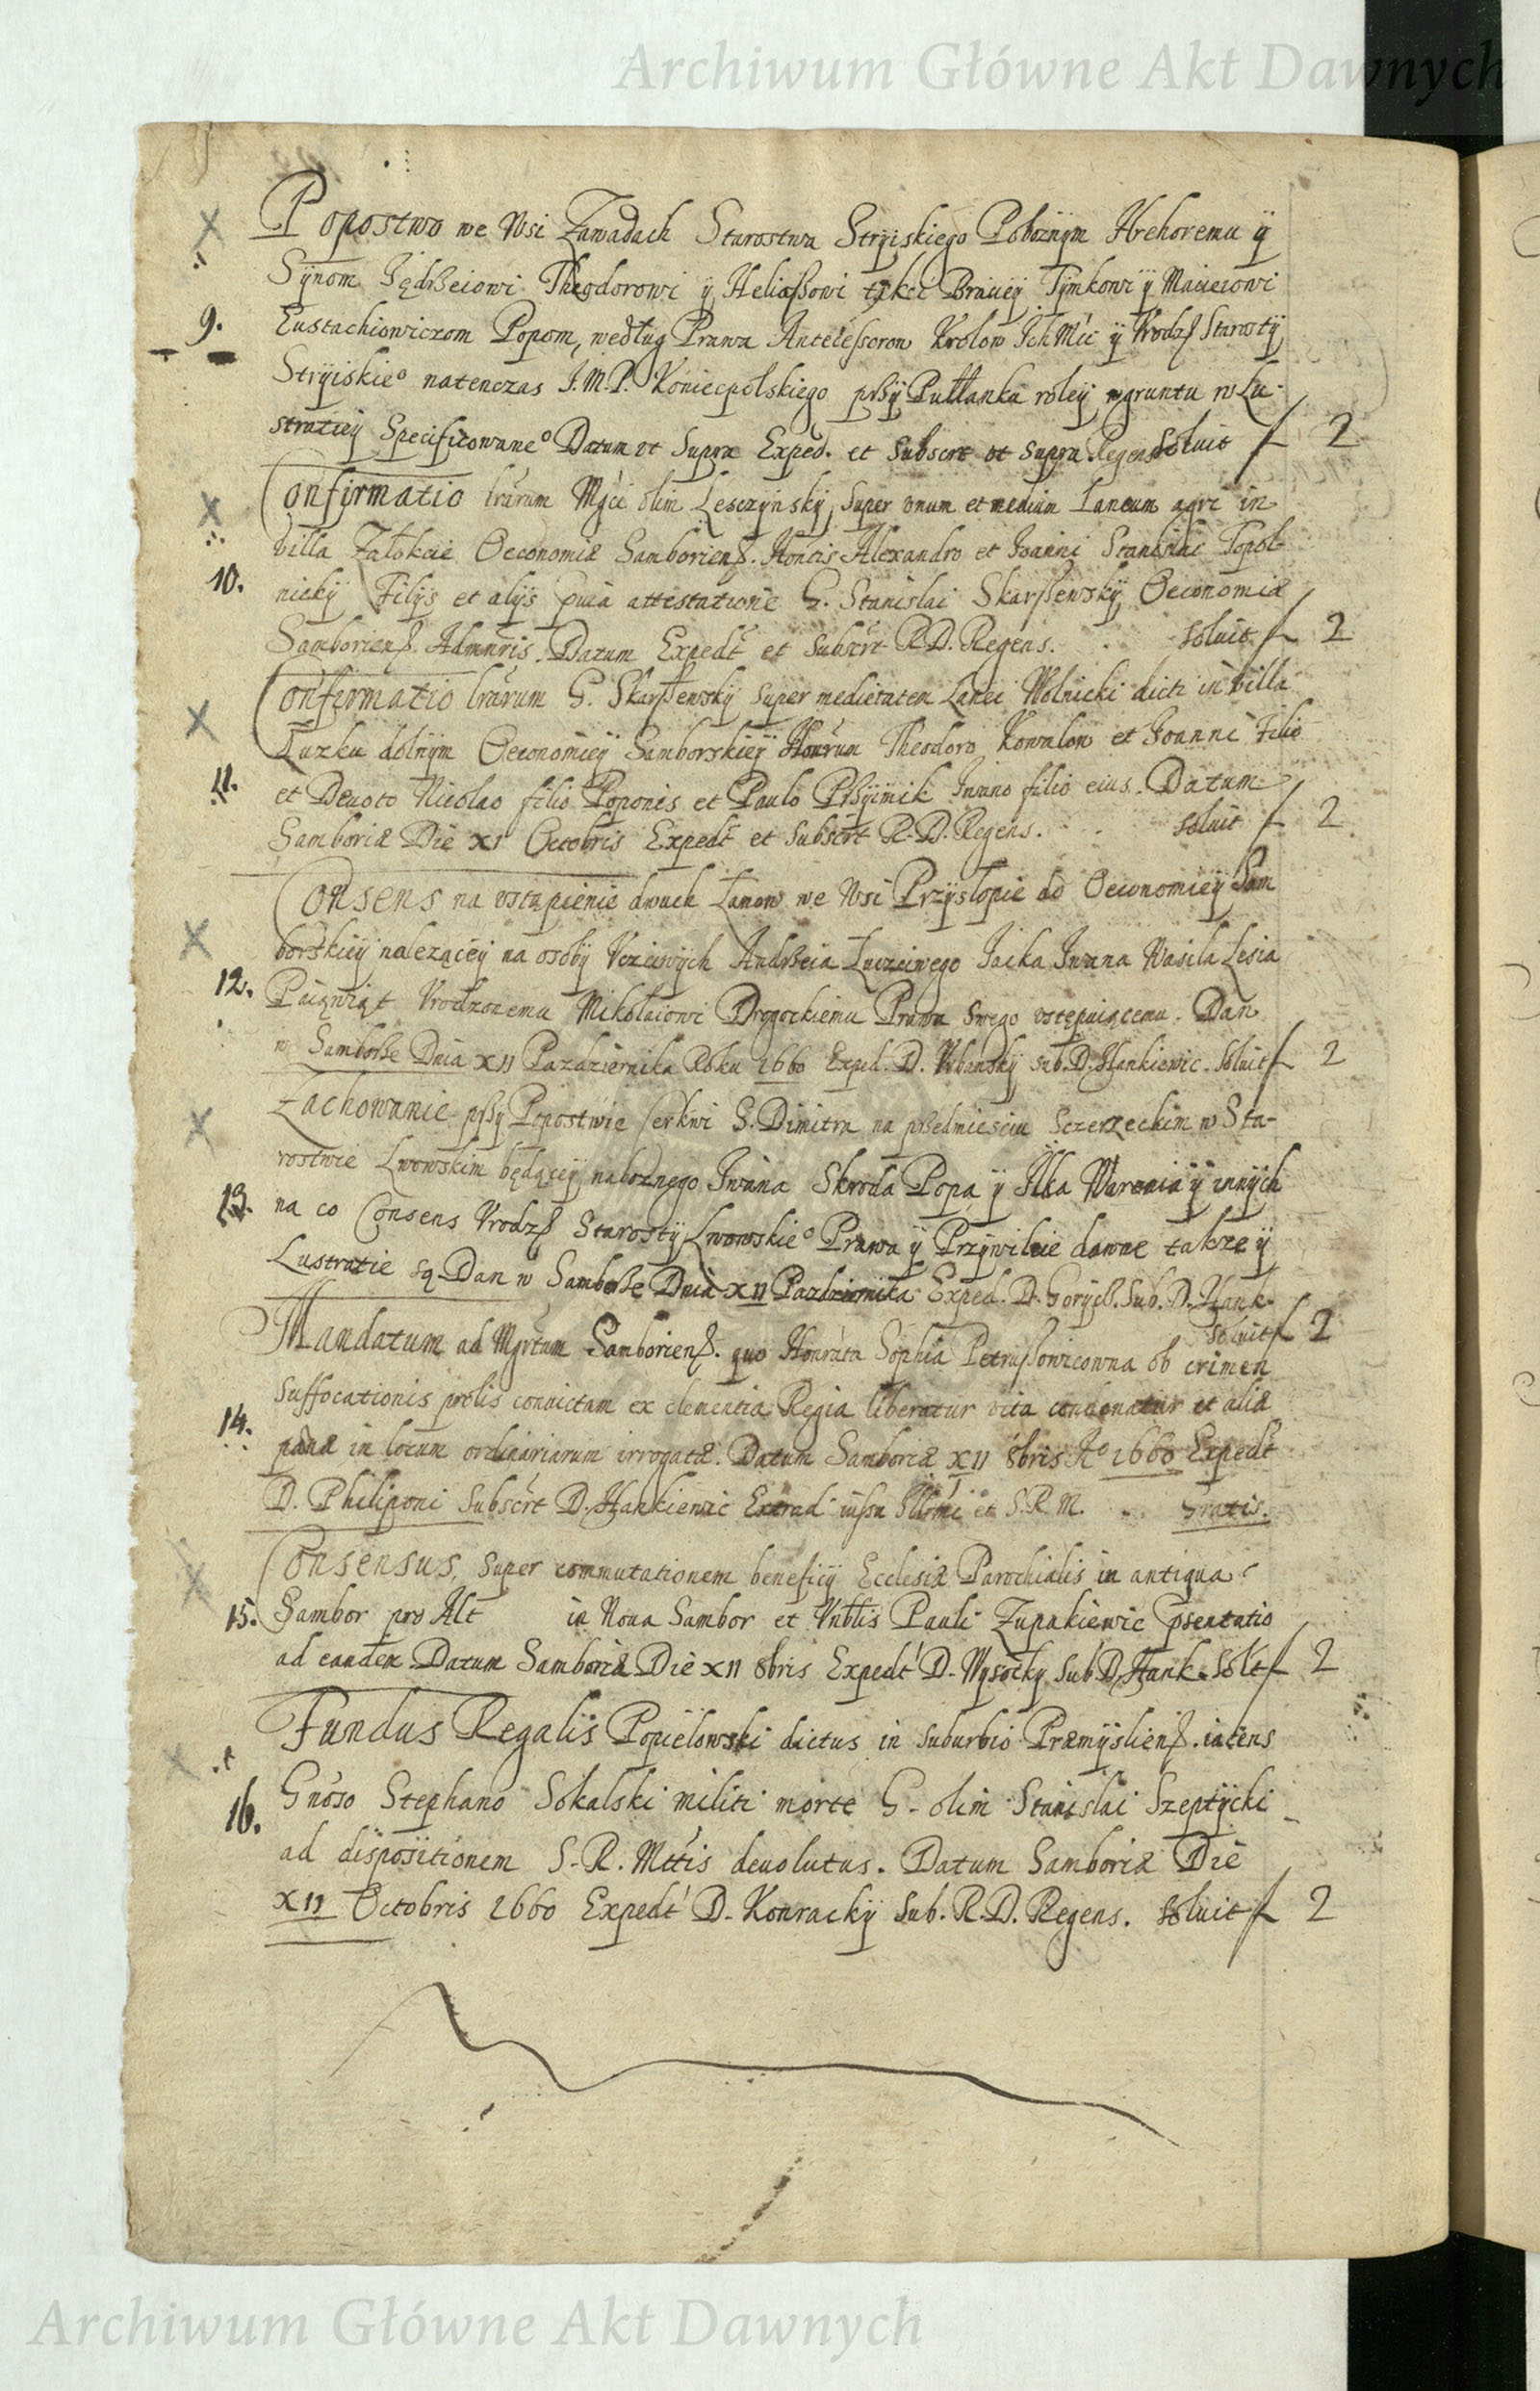 Archiwum Główne Akt Dawnych
Popostwo we Wsi Zawadach Starostwa Stryiskiego Pobożnym Hrehoremu ÿ
Sÿnom Jędrßeiowi Theodorowi ÿ Heliaßowi tÿkci Braciey Tÿmkowi ÿ Macieiowi
9. Eustachiowiczom Popom, według Prawa Antecessorow Krolow Ich Mći ÿ Vrodz. Starostÿ
Stryiskie° natenczas J. M. P. Koniecpolskiego przÿ Pułłanku roleÿ ÿ gruntu w Lu-
stratieÿ Specificowane° Datum vt Supra Exped. et Subscrt vt supra Regens Soluit f 2
Confirmatio lrarum Mgci olim Lesczÿnskÿ super vnum et medium Laneum agri in
villa Załokcie Oeconomiæ Samborienß. Honcis Alexandro et Joanni Stanislai Topol-
10. nickÿ Filÿs et alÿs pvia attestatione G. Stanislai Skarßewskÿ Oeconomiæ
Samborienß. Admnris. Datum Expedt et Subscrt R. D. Regens. . soluit f 2
Confirmatio lrarum G. Skarßewskÿ super medietatem Lanei Wolnicki dicti in villa
Łuzku dolnÿm Oeconomieÿ Samborskieÿ Honrum Theodoro Kowalow et Joanni Filio
11. et Deuoto Nicolao filio Poponis et Paulo Prßÿimik Iwano filio eius. Datum
Samboriæ Die XI Octobris Expedt et Subscrt R. D. Regens. . soluit f 2
Consens na vstąpienie dwuch Łanow we Wsi Przÿsłopie do Oeconomieÿ Sam
borskieÿ nalezącey na osobÿ Vczciwÿch Andrßeia Łuczciwego Jacka Iwana Wasila Lesia
12. Paiąwiąt Vrodzonemu Mikołaiowi Drogockiemu Prawa swego vstępuiącemu. Dan
w Samborße Dnia XII Pazdziernika Roku 1660 Exped. D. Vrbanskÿ sub. D. Hankiewic. Soluit f 2
Zachowanie przÿ Popostwie Cerkwi S. Dimitra na przedmiesciu Sczerzeckim w Sta-
rostwie Lwowskim będąceÿ nabożnego Iwana Skroda Popa ÿ Ilka Warenia ÿ innÿch
13. na co Consens Vrodz. Starostÿ Lwowskie° Prawa ÿ Przÿwileie dawne takze ÿ
Lustratie są. Dan w Samborße Dnia XII Pazdziernika Exped. D. Gorÿcß. Sub. D. Hank.
soluit f 2
Mandatum ad Mgrtum Samborienß. quo Honrata Sophia Petrußowicowna ob crimen
suffocationis prolis conuictam ex clementia Regia liberatur vita condonatur et aliæ
14. pænæ in locum ordinariarum irrogatæ. Datum Samboriæ XII 8bris A° 1660 Expedt
D. Philiponi Subscrt D. Hankiewic Extrad iussu Illmi et S. R. M. . Gratis.
Consensus super commutationem beneficÿ Ecclesiæ Parochialis in antiqua
15. Sambor pro Alt in Noua Sambor et Vnblis Pauli Zupakiewic psentatio
ad eandem Datum Samboriæ Die XII 8bris Expedt D. Wysockÿ Sub D. Hank. Solt f 2
Fundus Regalis Popielowski dictus in suburbio Præmÿslienß. iacens
16. Gnoso Stephano Sokalski militi morte G. olim Stanislai Szeptÿcki
ad dispositionem S. R. Mttis deuolutus. Datum Samboriæ Die
XII Octobris 1660 Expedt D. Konrackÿ Sub. R. D. Regens. soluit f 2
Archiwum Główne Akt Dawnych